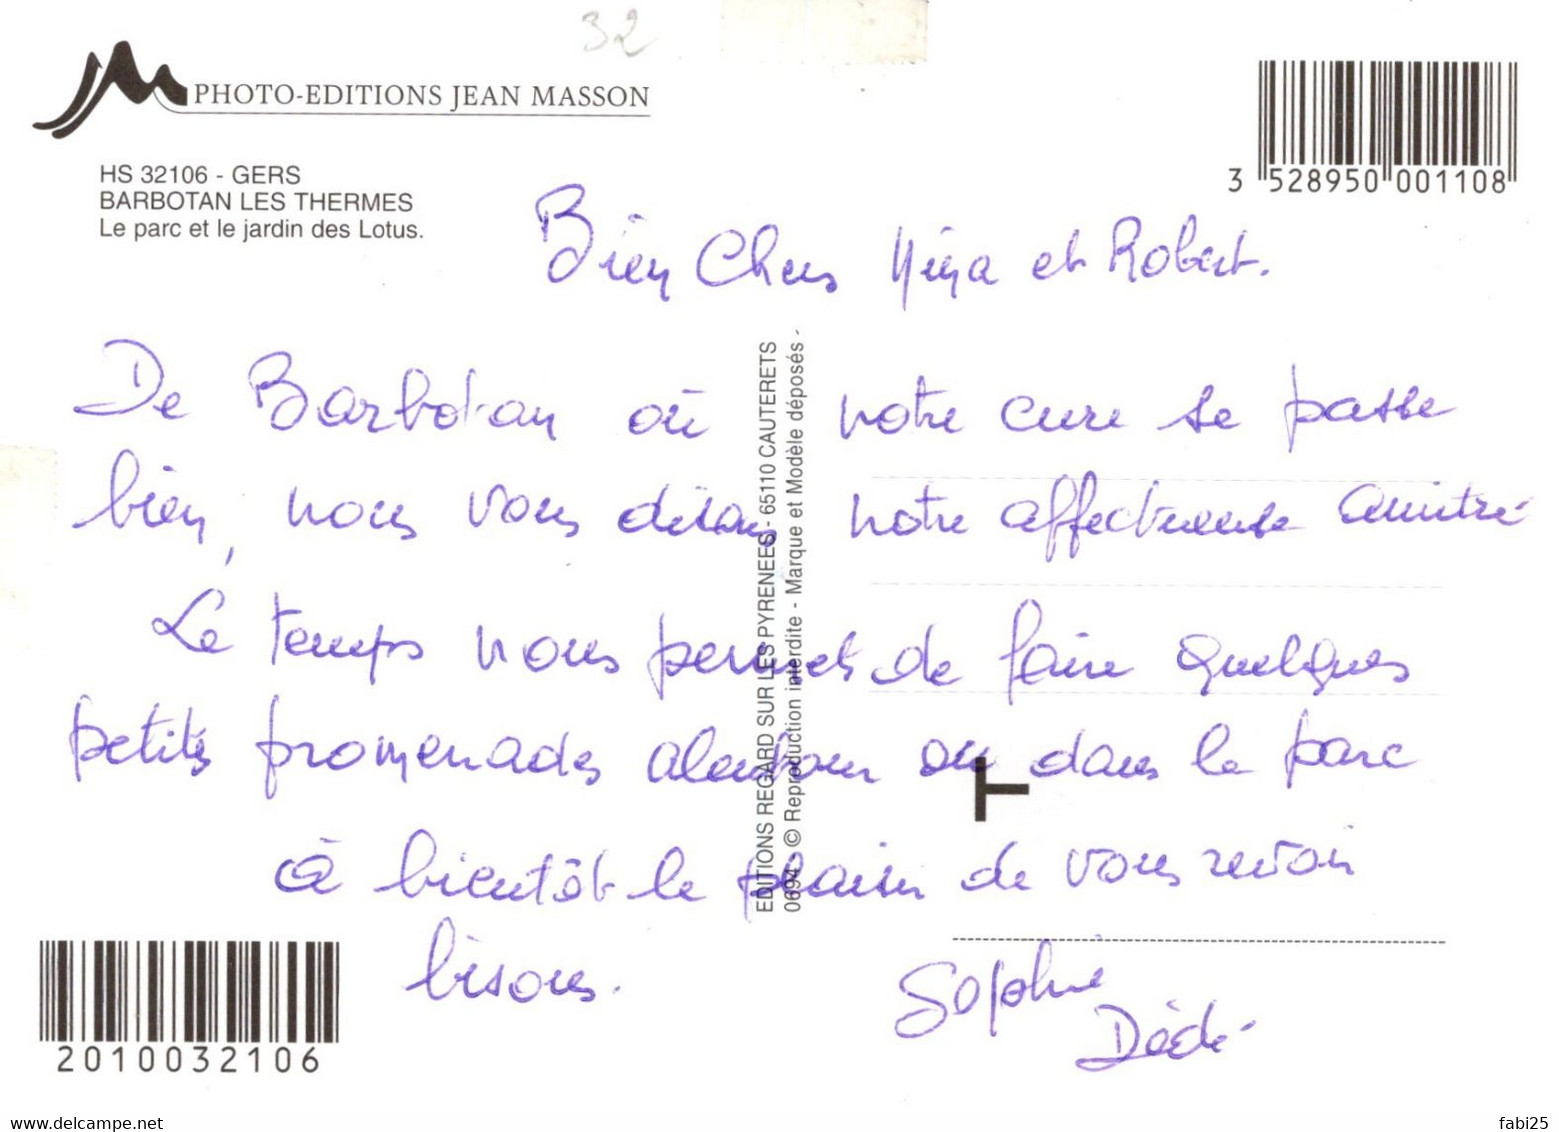 32
PHOTO-EDITIONS JEAN MASSON
HS 32106 - GERS
BARBOTAN LES THERMES
Le parc et le jardin des Lotus.
3 528950 001108
Bien Chers Nina et Robert.
De Barbotan où notre cure se passe
bien, nous vous disons notre affectueuse amitié
Le temps nous permet de faire quelques
petites promenades alentour ou dans le parc
à bientôt le plaisir de vous revoir
bisous.
Sophie
Dédé
EDITIONS REGARD SUR LES PYRENEES - 65110 CAUTERETS
0694 - © Reproduction interdite - Marque et Modèle déposés -
T
2010032106
delcampe.net
fabi25